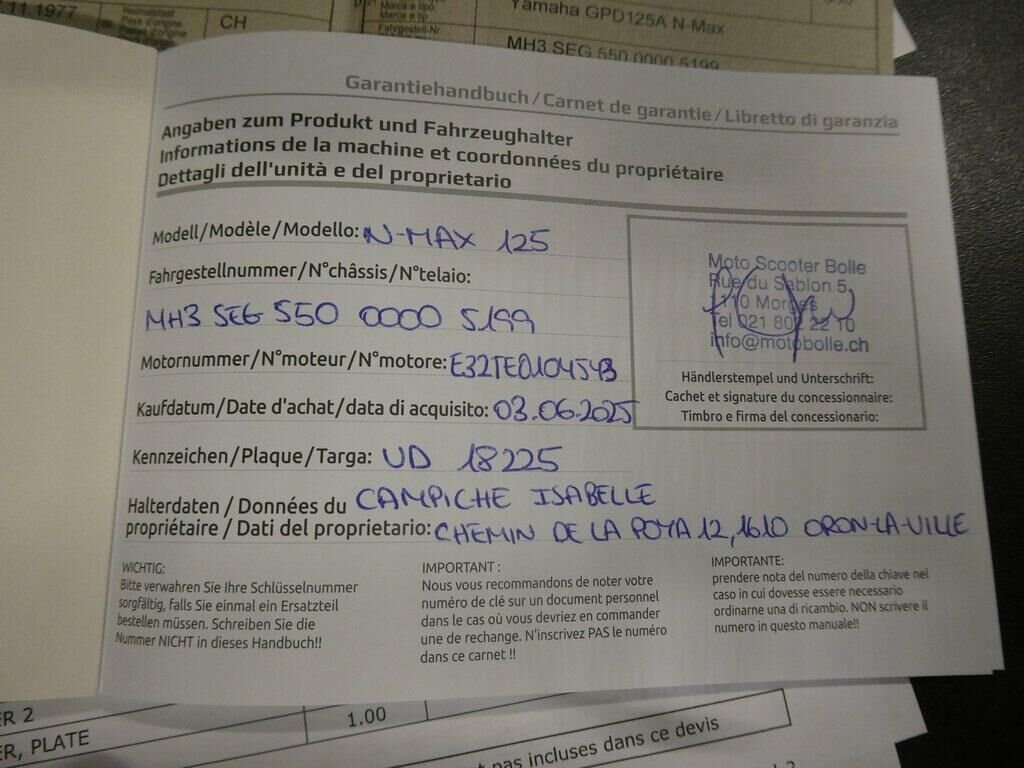 .11.1977
Heimatstaat
CH
Marca e tipo
Marca e tip
Yamaha GPD125A N-Max
Fahrgestell-Nr.
MH3 SEG 550 0000 5199
Garantiehandbuch / Carnet de garantie / Libretto di garanzia
Angaben zum Produkt und Fahrzeughalter
Informations de la machine et coordonnées du propriétaire
Dettagli dell'unità e del proprietario
Modell/Modèle/Modello: N-MAX 125
Fahrgestellnummer/N°châssis/N°telaio:
MH3 SEG 550 0000 5199
Motornummer/N°moteur/N°motore: E32TE0104543
Kaufdatum/Date d'achat/data di acquisito: 03.06.2025
Kennzeichen/Plaque/Targa: VD 18225
Halterdaten / Données du CAMPICHE ISABELLE
propriétaire / Dati del proprietario: CHEMIN DE LA POYA 12, 1610 ORON-LA-VILLE
Moto Scooter Bolle
Rue du Sablon 5,
1110 Morges
Tel 021 802 22 10
info@motobolle.ch
Händlerstempel und Unterschrift:
Cachet et signature du concessionnaire:
Timbro e firma del concessionario:
WICHTIG:
Bitte verwahren Sie Ihre Schlüsselnummer
sorgfältig, falls Sie einmal ein Ersatzteil
bestellen müssen. Schreiben Sie die
Nummer NICHT in dieses Handbuch!!
IMPORTANT :
Nous vous recommandons de noter votre
numéro de clé sur un document personnel
dans le cas où vous devriez en commander
une de rechange. N'inscrivez PAS le numéro
dans ce carnet !!
IMPORTANTE:
prendere nota del numero della chiave nel
caso in cui dovesse essere necessario
ordinarne una di ricambio. NON scrivere il
numero in questo manuale!!
ER 2
1.00
ER, PLATE
pas incluses dans ce devis